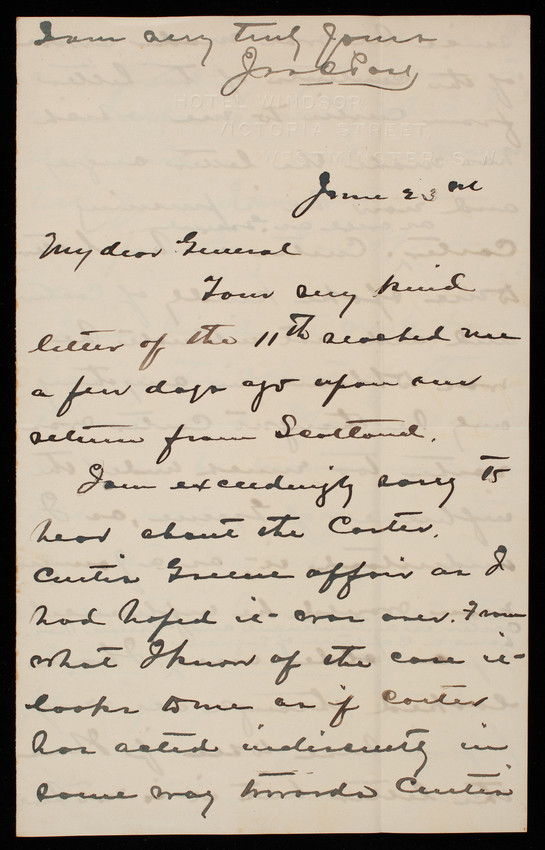 I am very truly Yours
HOTEL WINDSOR
VICTORIA STREET
WESTMINSTER S.W.
June 23rd
My dear General
Your very kind
letter of the 11th reached me
a few days ago upon our
return from Scotland.
I am exceedingly sorry to
hear about the Carter.
Curtis Greene affair as I
had hoped it was over. From
what I know of the case it
looks to me as if Carter
has acted indiscreetly in
some way towards Curtis